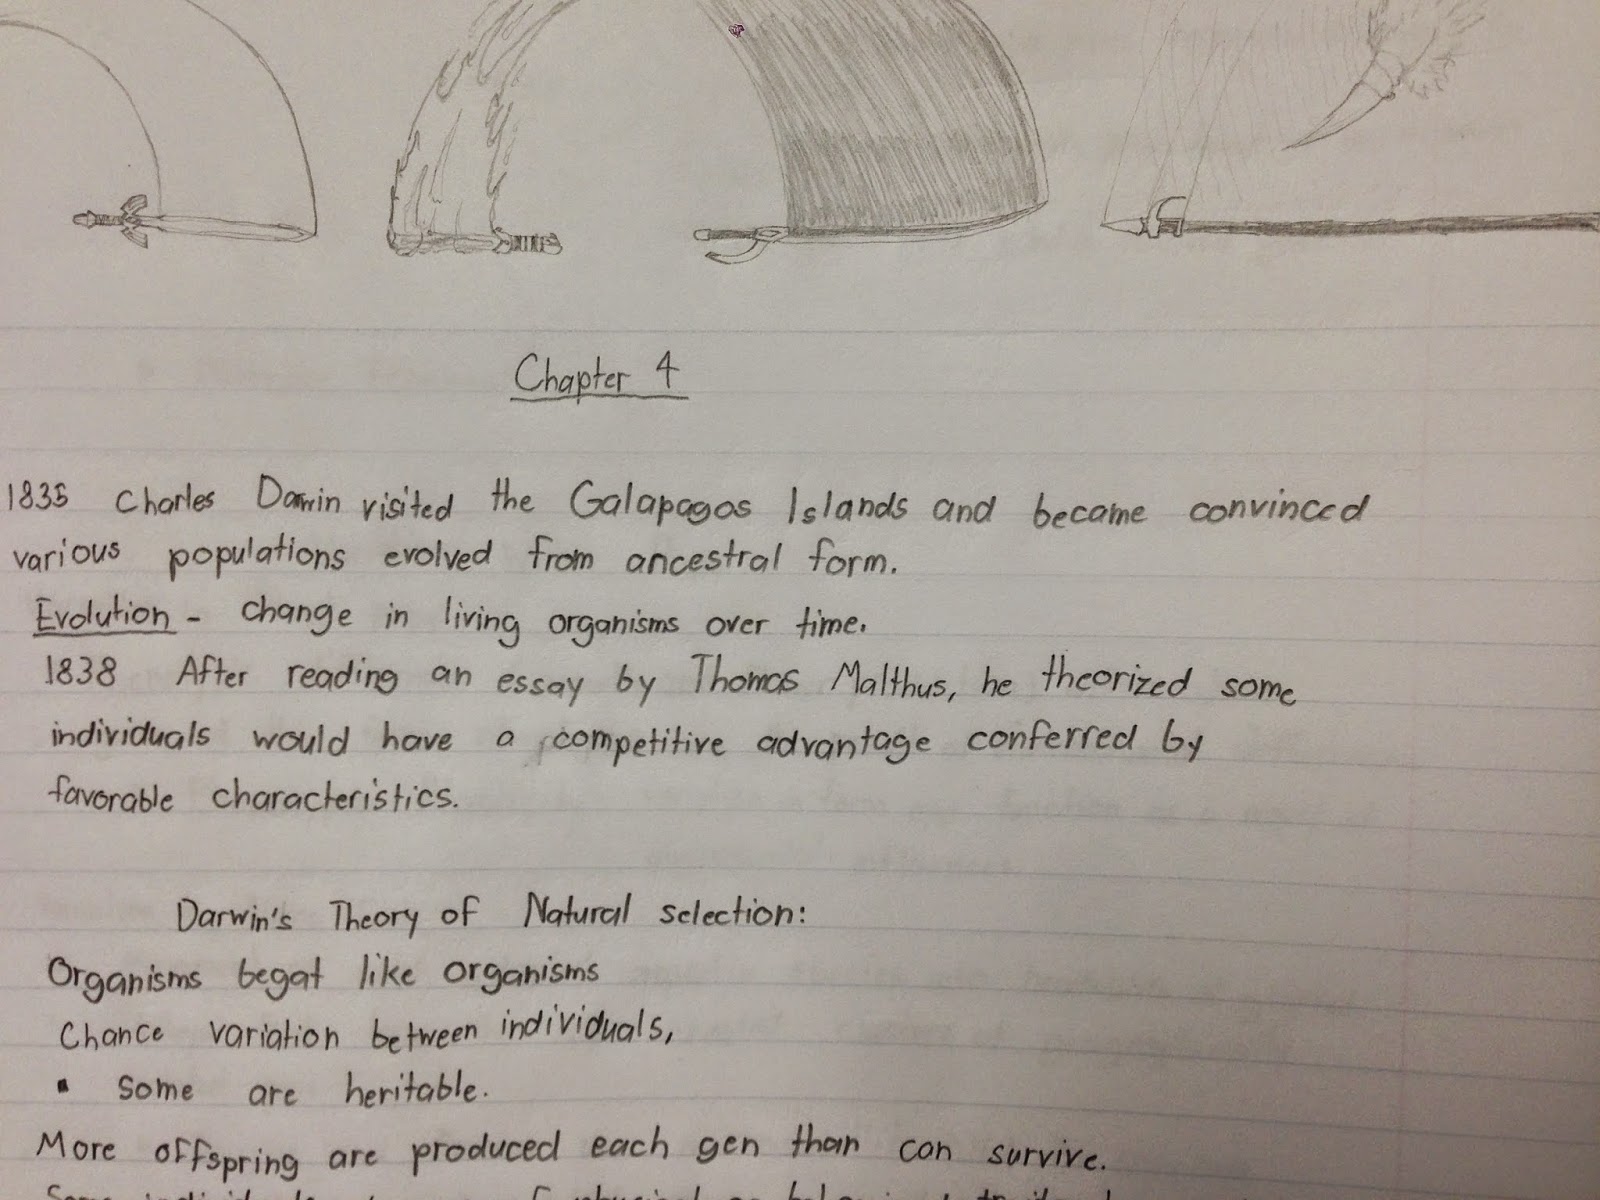 Chapter 4
1835 Charles Darwin visited the Galapagos Islands and became convinced
various populations evolved from ancestral form.
Evolution - change in living organisms over time.
1838 After reading an essay by Thomas Malthus, he theorized some
individuals would have a competitive advantage conferred by
favorable characteristics.
Darwin's Theory of Natural selection:
Organisms begat like organisms
Chance variation between individuals,
▪ Some are heritable.
More offspring are produced each gen than can survive.
Some